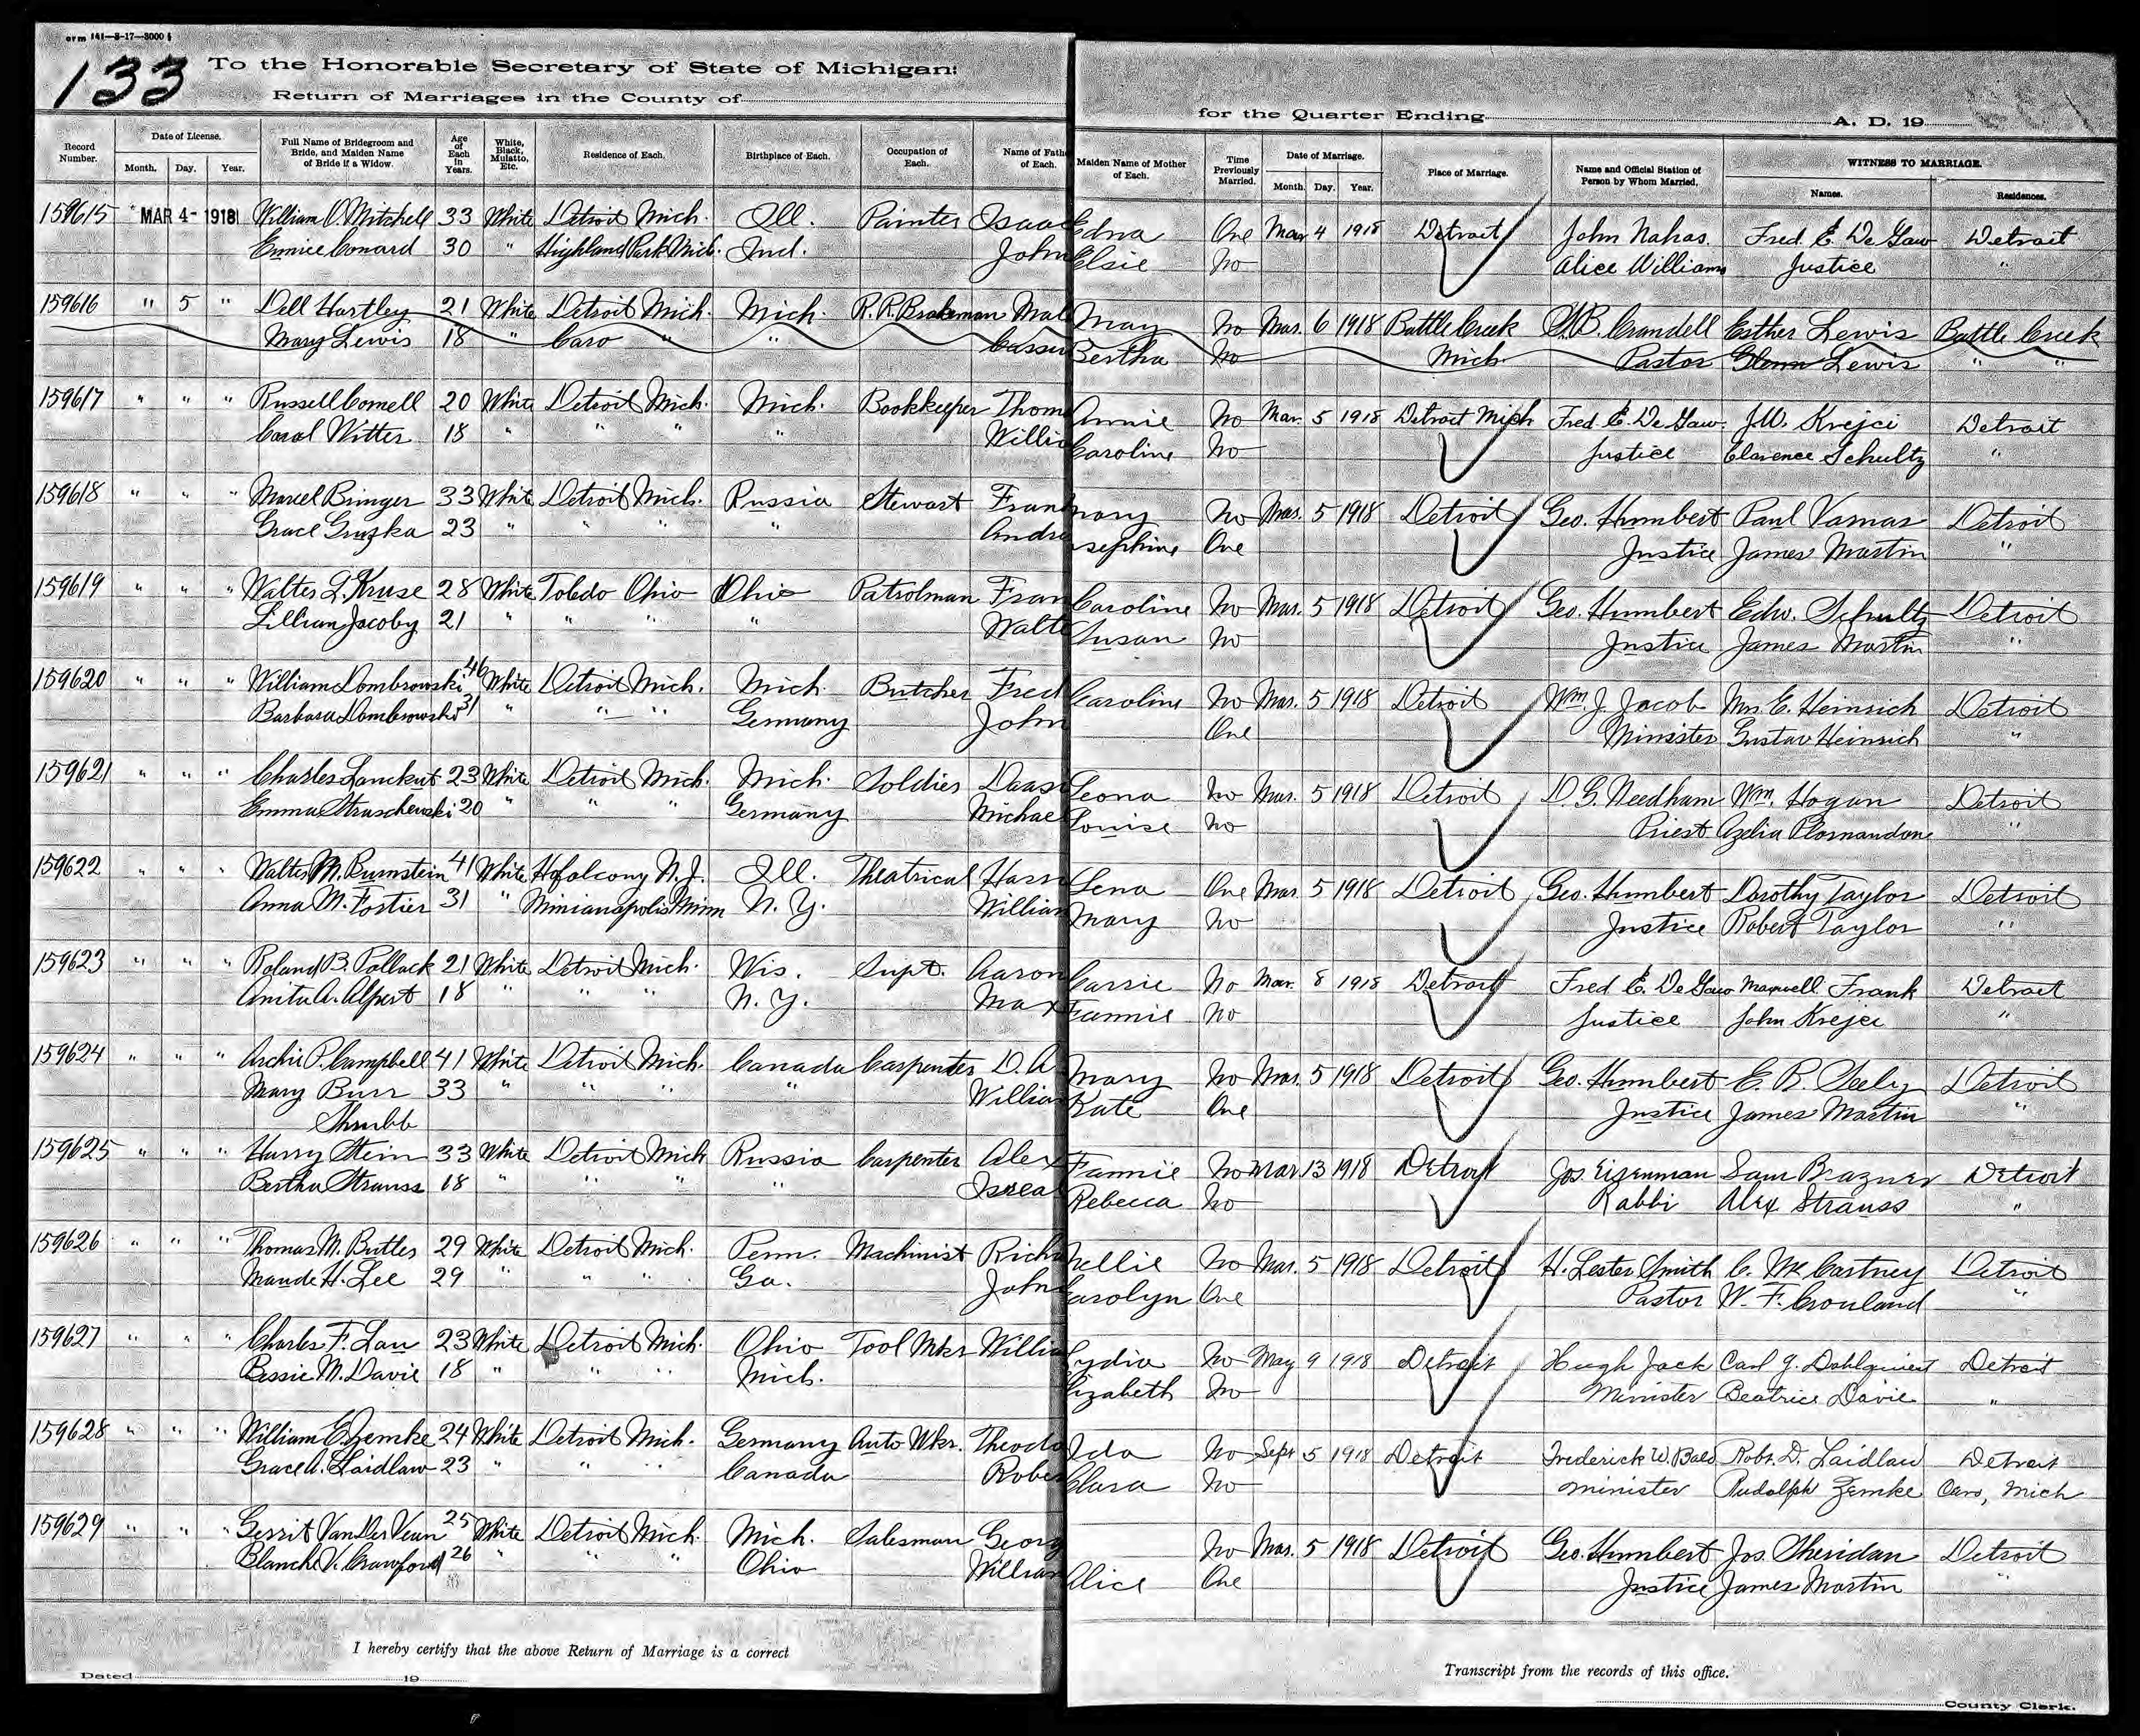 orm 141—8-17—3000
133
To the Honorable Secretary of State of Michigan:
Return of Marriages in the County of
for the Quarter Ending A. D. 19
Record Number. Date of License. Month. Day. Year. Full Name of Bridegroom and Bride, and Maiden Name of Bride if a Widow. Age of Each in Years. White, Black, Mulatto, Etc. Residence of Each. Birthplace of Each. Occupation of Each. Name of Fath of Each. Maiden Name of Mother of Each. Time Previously Married. Date of Marriage. Month. Day. Year. Place of Marriage. Name and Official Station of Person by Whom Married. WITNESS TO MARRIAGE. Names. Residences.
159615 MAR 4- 1918 William O. Mitchell 33 White Detroit Mich. Ill. Painter Isaac Edna One Mar 4 1918 Detroit John Nahas. Fred E. De Gaw Detroit
Eunice Conard 30 " Highland Park Mich. Ind. John Elsie No Alice Williams Justice "
159616 " 5 " Dell Hartley 21 White Detroit Mich. Mich. R.R. Brakeman Mal May No Mar. 6 1918 Battle Creek Crandell Esther Lewis Battle Creek
Mary Lewis 18 " Caro " " Bertha No Mich. Pastor Glenn Lewis " "
159617 " " " Russell Cornell 20 White Detroit Mich. Mich. Bookkeeper Thom Annie No Mar. 5 1918 Detroit Mich Fred E. De Gaw. J.W. Krejci Detroit
Carol Witter 18 " " " " Willi Caroline No Justice Clarence Schultz "
159618 " " " Marcel Bringer 33 White Detroit Mich. Russia Stewart Fran mary No Mar. 5 1918 Detroit Geo. Humbert Paul Vamar Detroit
Grace Gruzka 23 " " " " Andre sephine One Justice James Martin "
159619 " " " Walter L. Kruse 28 White Toledo Ohio Ohio Patrolman Fran Caroline No Mar. 5 1918 Detroit Geo. Humbert Edw. Schultz Detroit
Lillian Jacoby 21 " " " " Walte Susan No Justice James Martin "
159620 " " " William Dombrowski 46 White Detroit Mich. Mich. Butcher Fred Caroline No Mar. 5 1918 Detroit Wm. J. Jacob Mrs. E. Heinrich Detroit
Barbara Dombrowski 31 " " " Germany John One Minister Gustav Heinrich "
159621 " " " Charles Lanckut 23 White Detroit Mich. Mich. Soldier Leona No Mar. 5 1918 Detroit D. G. Needham Wm. Hogan Detroit
Emma Struschewski 20 " " " Germany Michae Louise No Priest Azelia Plornandone "
159622 " " " Walter M. Burnstein 41 White N. J. Ill. Theatrical Harr Lena One Mar. 5 1918 Detroit Geo. Humbert Dorothy Taylor Detroit
Anna M. Fortier 31 " Minianapolis Minn N. Y. William Mary No Justice Robert Taylor "
159623 " " " Roland B. Pollack 21 White Detroit Mich. Wis. Supt. Aaron Carrie No Mar. 8 1918 Detroit Fred E. De Gaw Maxwell Frank Detroit
Anita A. Alpert 18 " " " N. Y. Max Fannie No Justice John Krejci "
159624 " " " Archie P. Campbell 41 White Detroit Mich. Canada Carpenter D. A Mary No Mar. 5 1918 Detroit Geo. Humbert E. B. Seely Detroit
Mary Burr 33 " " " " William Kate One Justice James Martin "
Shrubb
159625 " " " Harry Stein 33 White Detroit Mich Russia Carpenter Alex Fannie No Mar 13 1918 Detroit Jos. Eizenman Sam Brazner Detroit
Bertha Strauss 18 " " " " Isreal Rebecca No Rabbi Alex Strauss "
159626 " " " Thomas M. Butler 29 White Detroit Mich. Penn. Machinist Richa Nellie No Mar. 5 1918 Detroit H. Lester Smith C. Mc Cartney Detroit
Maude H. Lee 29 " " " Ga. John Carolyn One Pastor W. F. Crouland "
159627 " " " Charles F. Lau 23 White Detroit Mich. Ohio Tool Mkr Willia Lydia No May 9 1918 Detroit Hugh Jack Carl J. Dahlquist Detroit
Bessie M. Davie 18 " " " Mich. lizabeth No Minister Beatrice Davie "
159628 " " " William E. Zemke 24 White Detroit Mich. Germany Auto Wkr. Theodo Ida No Sept 5 1918 Detroit Frederick W. Bald Robt. D. Laidlaw Detroit
Grace A. Laidlaw 23 " " " Canada Rober Clara No Minister Rudolph Zemke Caro, Mich
159629 " " " Gerrit Van Der Veun 25 White Detroit Mich. Mich. Salesman Georg No Mar. 5 1918 Detroit Geo. Humbert Jos. Sheridan Detroit
Blanche V. Crawford 26 " " " Ohio William Alice One Justice James Martin "
I hereby certify that the above Return of Marriage is a correct
Transcript from the records of this office.
Dated 19
County Clerk.